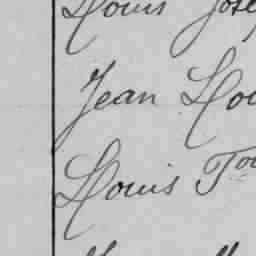 Louis Jose
Jean Lou
Louis To